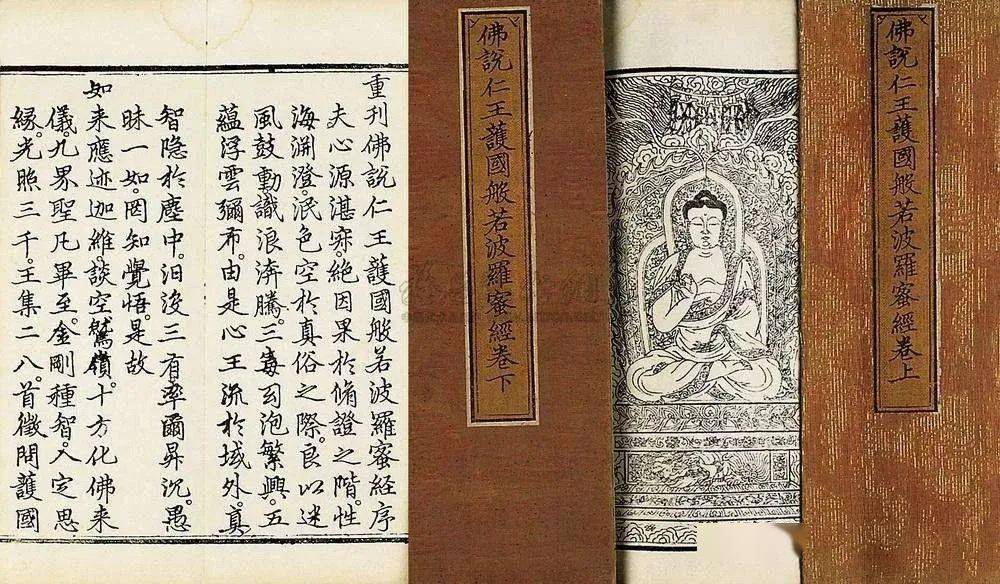 佛說仁王護國般若波羅蜜經卷上
佛說仁王護國般若波羅蜜經卷下
重刊佛說仁王護國般若波羅蜜經序
夫心源湛寂。絕因果於脩證之階。性
海淵澄。泯色空於真俗之際。良以迷
風鼓動。識浪渀騰。三毒泡繁興。五
蘊浮雲彌布。由是心王流於域外。真
智隐於塵中。汩沒三有。率爾昇沉。愚
昧一如。罔知覺悟。是故
如来應迹迦維。談空鷲嶺。十方化佛来
儀。九界聖凡畢至。金剛種智。入定思
緣。光照三千。王集二八。首徵問護國